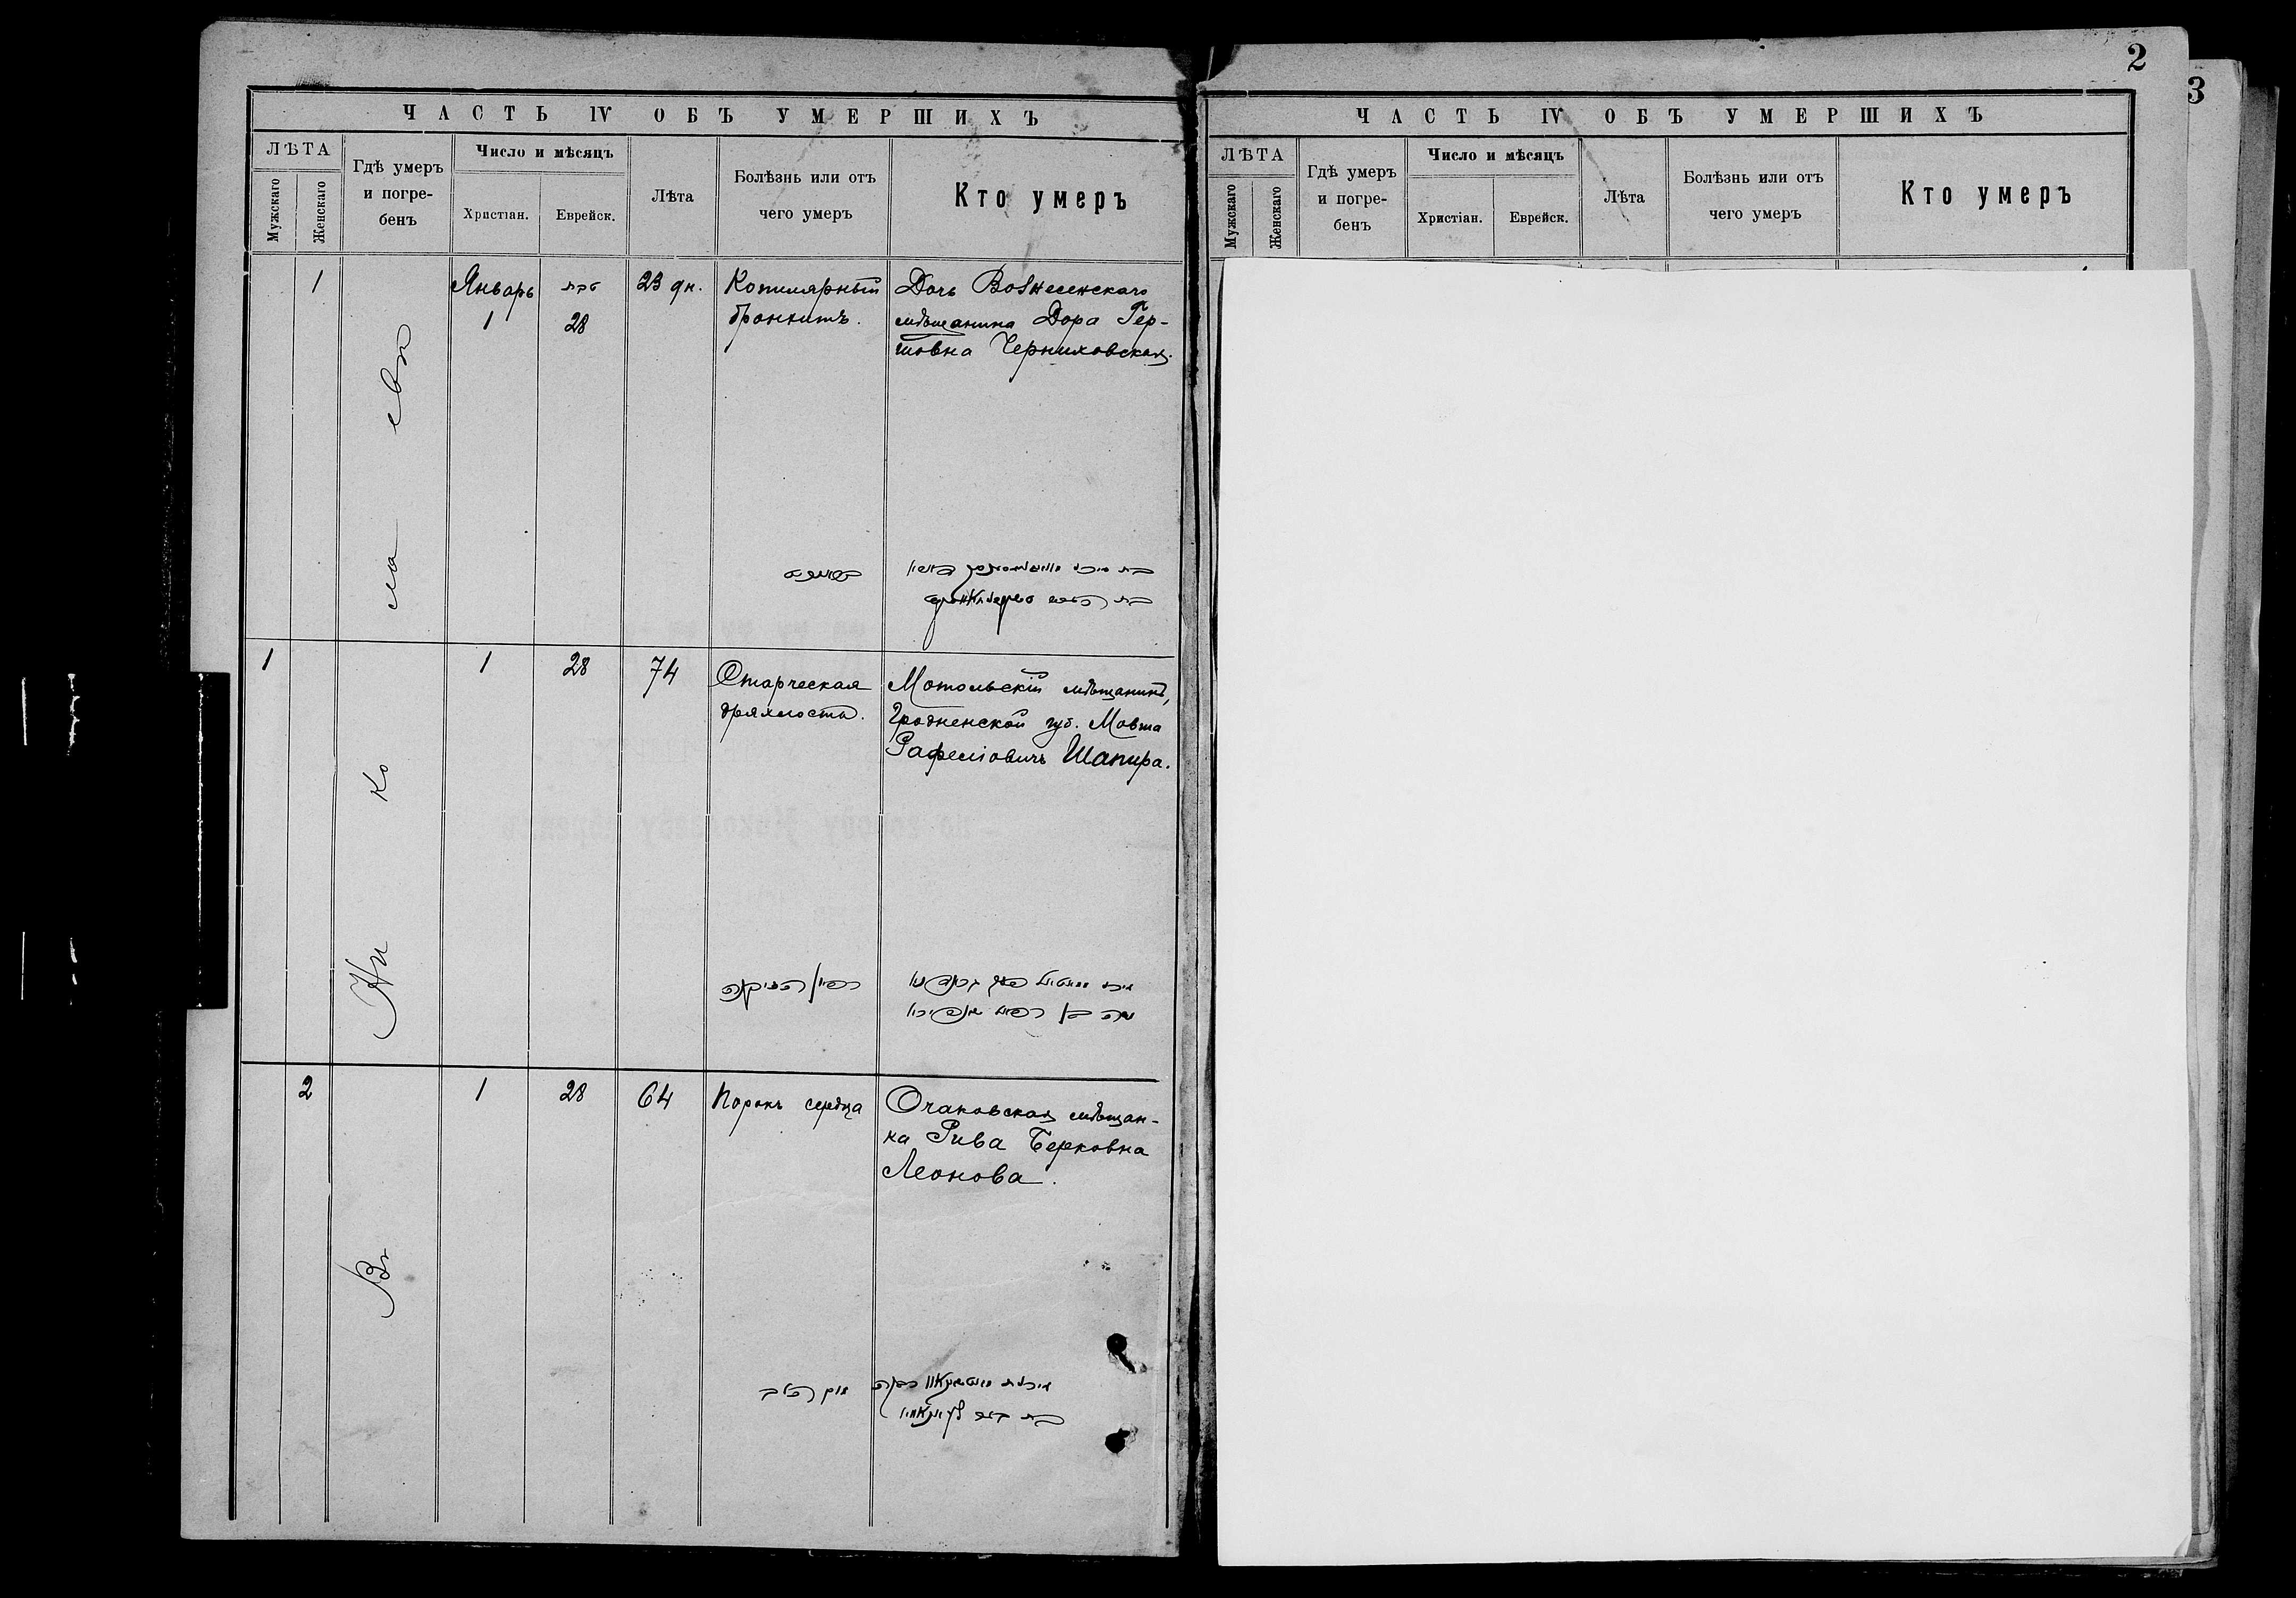 2
3
ЧАСТЬ IV ОБЪ УМЕРШИХЪ
ЛѢТА
Мужскаго
Женскаго
Гдѣ умеръ
и погре-
бенъ
Число и мѣсяцъ
Христіан.
Еврейск.
Лѣта
Болѣзнь или отъ
чего умеръ
Кто умеръ
1
Январь
1
טבת
28
23 дн.
Капилярный
бронхитъ.
Дочь Вознесенскаго
мѣщанина Дора Гер-
шовна Черниховская.
1
1
28
74
Старческая
дряхлость.
Мотольскій мѣщанинъ,
Гродненской губ. Мовша
Рафеліовичъ Шапира.
2
1
28
64
Порокъ сердца
Очаковская мѣщан-
ка Рива Берковна
Леонова.
Въ Николаевѣ
ЧАСТЬ IV ОБЪ УМЕРШИХЪ
ЛѢТА
Мужскаго
Женскаго
Гдѣ умеръ
и погре-
бенъ
Число и мѣсяцъ
Христіан.
Еврейск.
Лѣта
Болѣзнь или отъ
чего умеръ
Кто умеръ